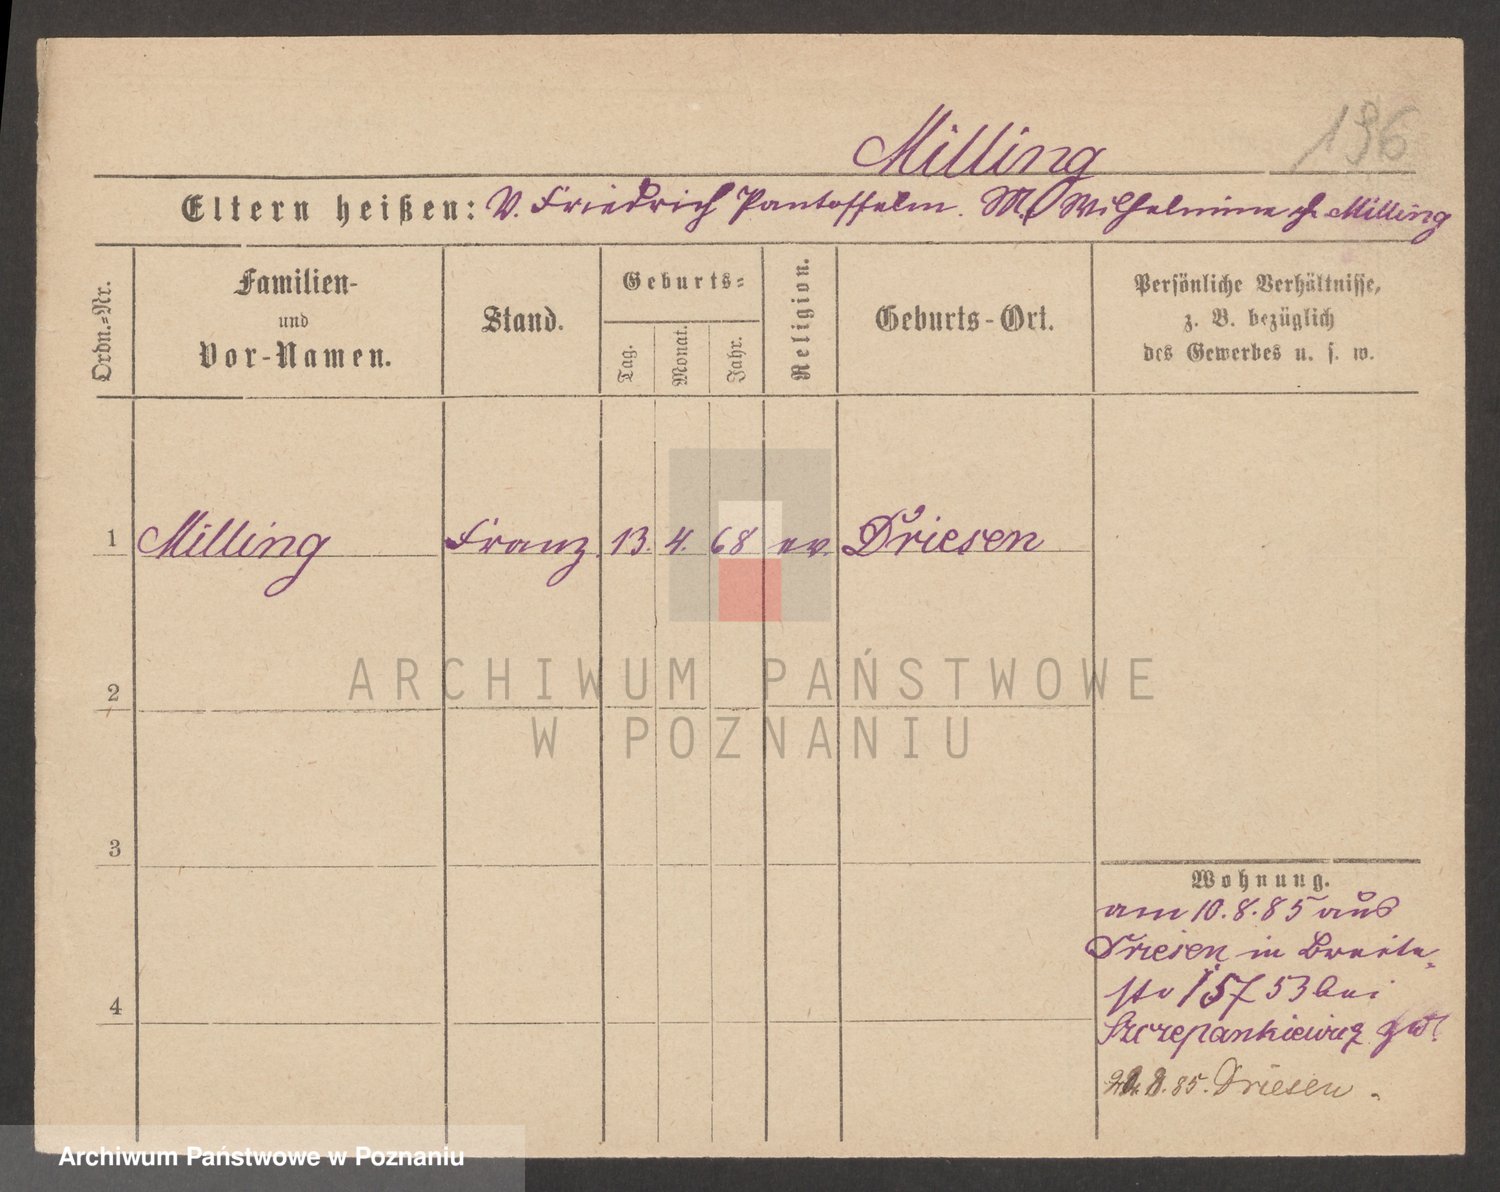 Milling
196
Eltern heißen: V. Friedrich Pantoffelm. M. Wilhelmine gb. Milling
Ordn.-Nr.
Familien-
und
Vor-Namen.
Stand.
Geburts-
Tag.
Monat.
Jahr.
Religion.
Geburts-Ort.
Persönliche Verhältnisse,
z. B. bezüglich
des Gewerbes u. s. w.
1 Milling Franz 13. 4. 68 ev. Driesen
2
3
4
Wohnung.
am 10. 8. 85 aus
Driesen in Breite-
str 53 bei
Szczepankiewicz
8. 85. Driesen.
ARCHIWUM PAŃSTWOWE
W POZNANIU
Archiwum Państwowe w Poznaniu